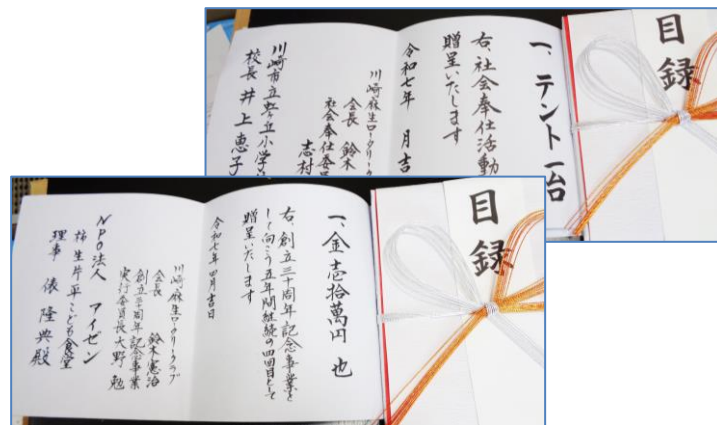 目録
一、テント一台
右、社会奉仕活動
贈呈いたします
令和七年 月吉
川崎麻生ロータリーク
会長 鈴木
社会奉仕委員
志村
川崎市立 小学
校長 井上恵子
目録
一、金壱拾萬円 也
右、創立三十周年記念事業と
して向こう五年間継続の四回目として
贈呈いたします
令和七年四月吉日
川崎麻生ロータリークラブ
会長 鈴木憲治
創立三十周年記念事業
実行委員長 大野 勉
NPO法人 アイゼン
柿生片平こども食堂
理事 俵 隆典殿